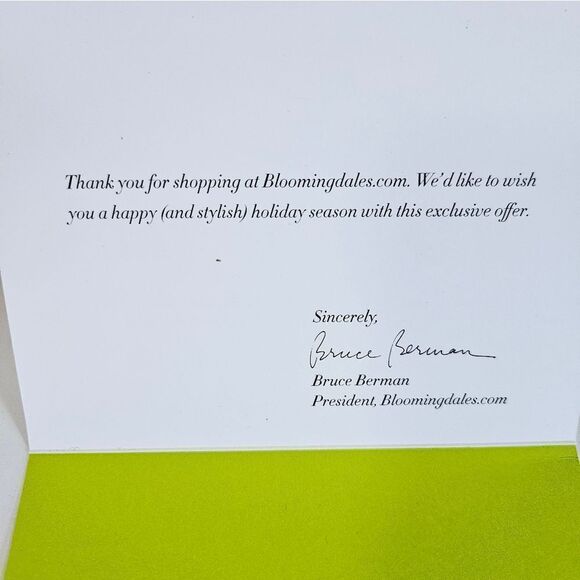 Thank you for shopping at Bloomingdales.com. We'd like to wish
you a happy (and stylish) holiday season with this exclusive offer.
Sincerely,
Bruce Berman
Bruce Berman
President, Bloomingdales.com